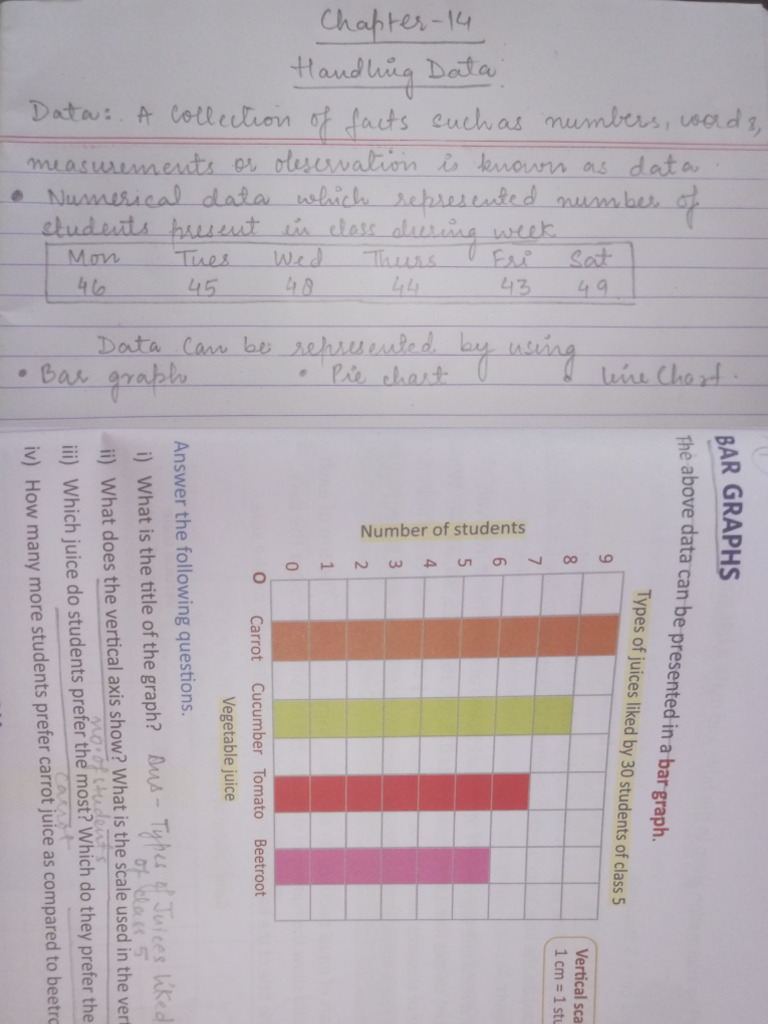 Chapter-14
Handling Data
Data: A Collection of facts such as numbers, words,
measurements or observation is known as data.
• Numerical data which represented number of
students present in class during week
Mon Tues Wed Thurs Fri Sat
46 45 48 44 43 49
Data Can be represented by using
• Bar graph • Pie chart • line Chart.
BAR GRAPHS
The above data can be presented in a bar graph.
Types of juices liked by 30 students of class 5
Vertical sca
1 cm = 1 stu
Number of students
9
8
7
6
5
4
3
2
1
0
O Carrot Cucumber Tomato Beetroot
Vegetable juice
Answer the following questions.
i) What is the title of the graph? Ans - Types of Juices liked
of class 5
ii) What does the vertical axis show? What is the scale used in the vert
no. of students
iii) Which juice do students prefer the most? Which do they prefer the
Carrot
iv) How many more students prefer carrot juice as compared to beetro